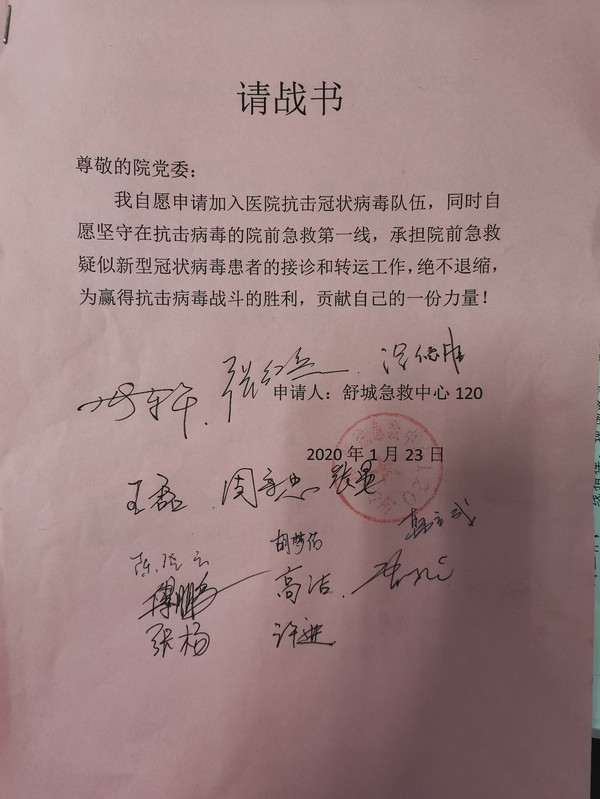 请战书
尊敬的院党委：
我自愿申请加入医院抗击冠状病毒队伍，同时自
愿坚守在抗击病毒的院前急救第一线，承担院前急救
疑似新型冠状病毒患者的接诊和转运工作，绝不退缩，
为赢得抗击病毒战斗的胜利，贡献自己的一份力量！
申请人：舒城急救中心 120
2020 年 1 月 23 日
王磊
胡梦伟
高洁
张杨 许进